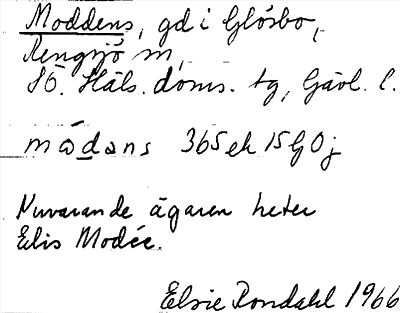 Moddens, gd i Glösbo,
Rengsjö sn,
SÖ. Häls. doms. tg, Gävl. l.
mådans 365 ek 15G0j
Nuvarande ägaren heter
Elis Modée.
Elsie Rondahl 1966